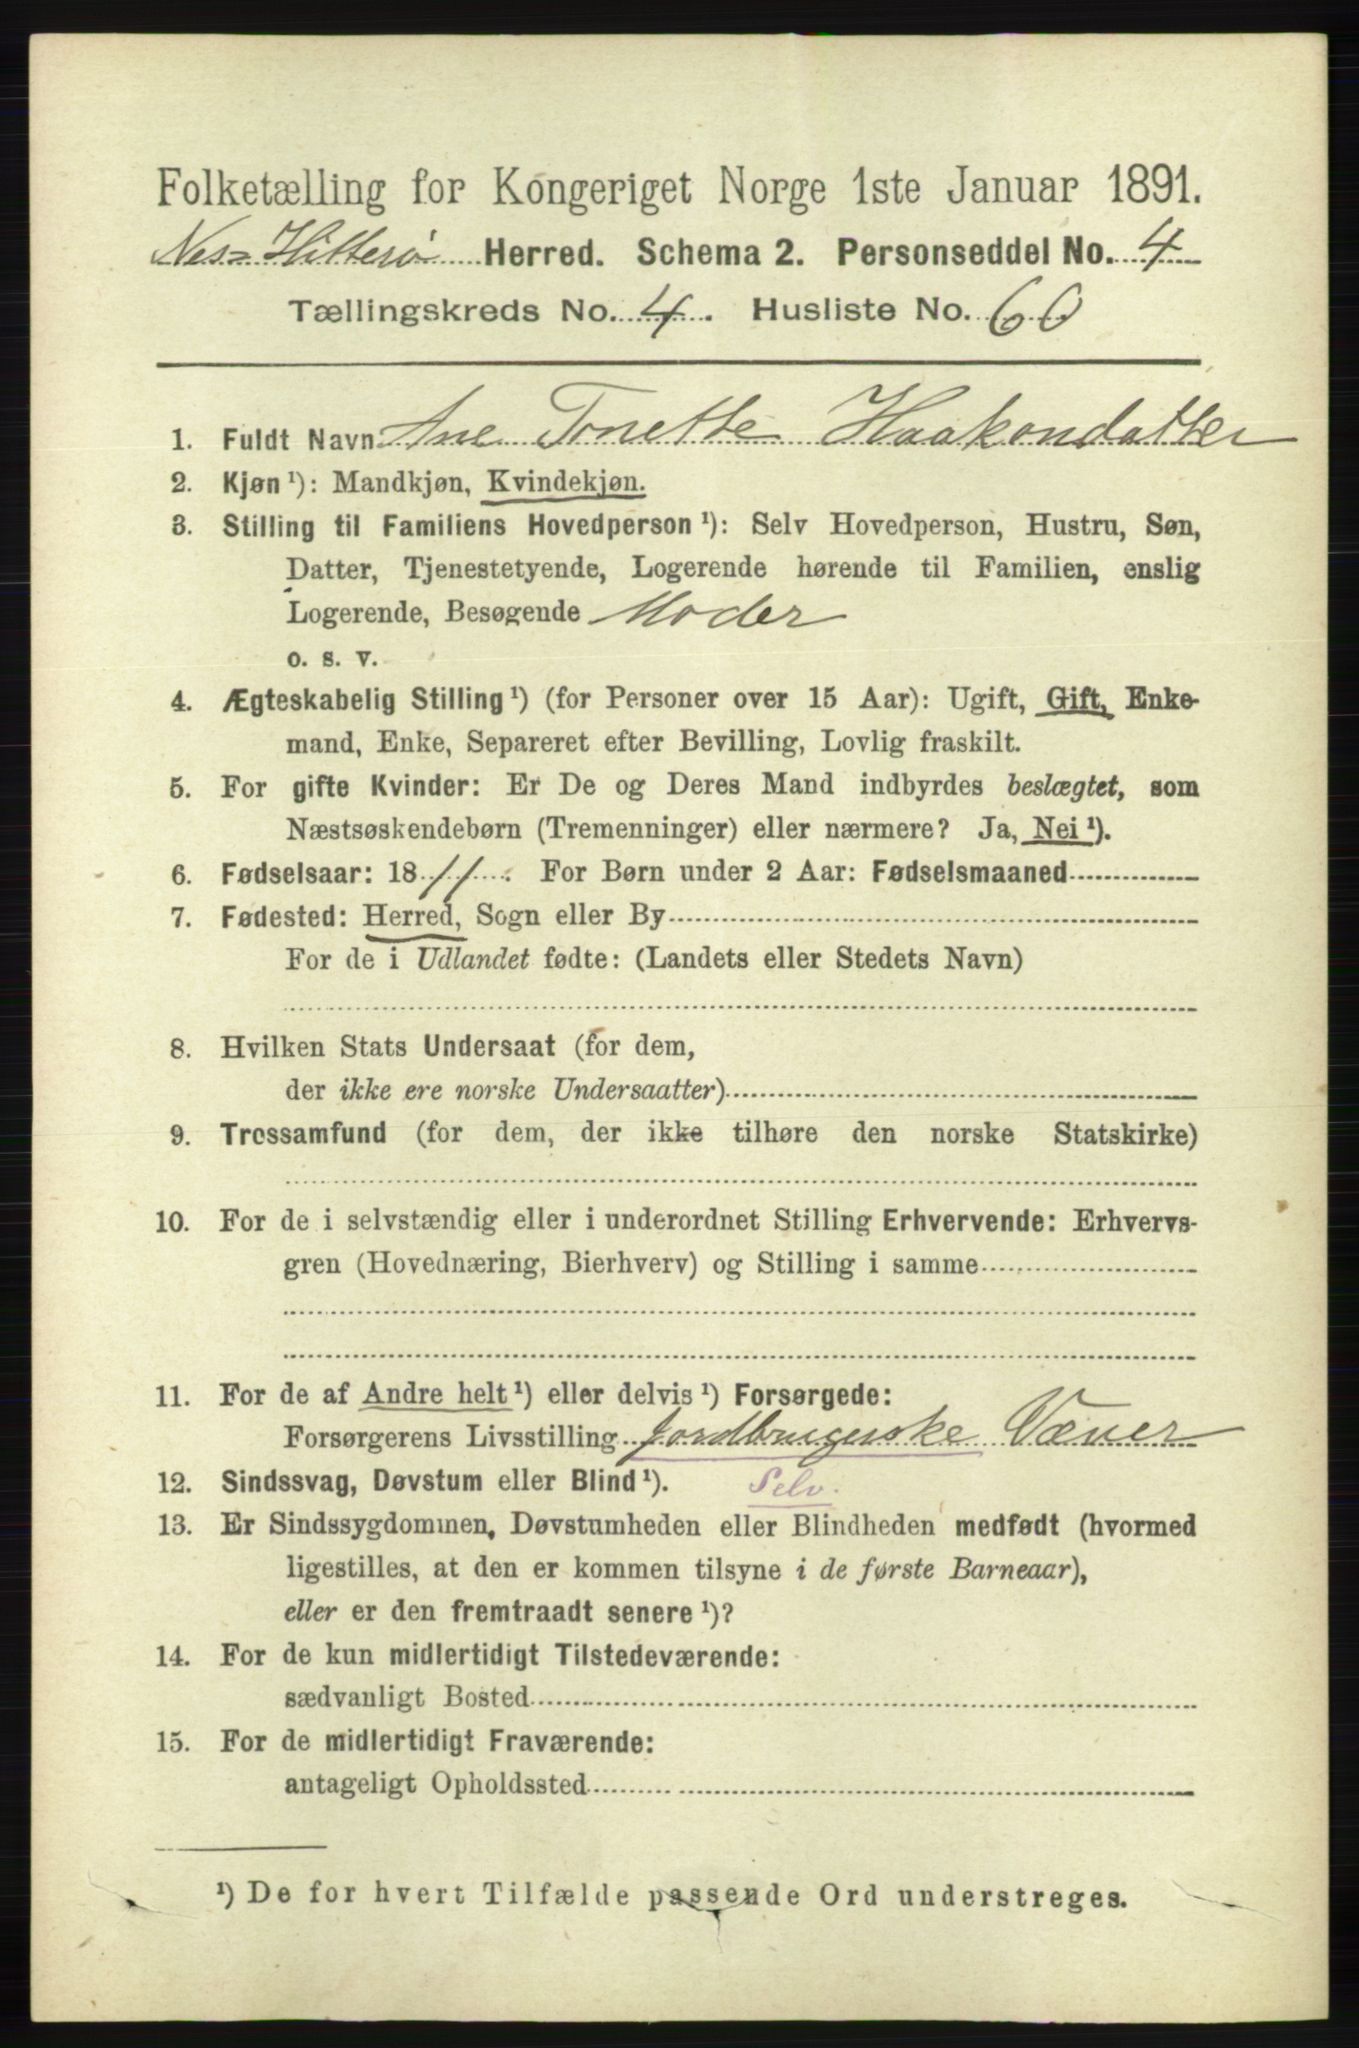 Folketælling for Kongeriget Norge 1ste Januar 1891.
Nes-Hitterø Herred. Schema 2. Personseddel No. 4
Tællingskreds No. 4. Husliste No. 60
1. Fuldt Navn Ane Tonette Haakondatter
2. Kjøn ¹): Mandkjøn, Kvindekjøn.
3. Stilling til Familiens Hovedperson ¹): Selv Hovedperson, Hustru, Søn,
Datter, Tjenestetyende, Logerende hørende til Familien, enslig
Logerende, Besøgende Moder
o. s. v.
4. Ægteskabelig Stilling ¹) (for Personer over 15 Aar): Ugift, Gift, Enke-
mand, Enke, Separeret efter Bevilling, Lovlig fraskilt.
5. For gifte Kvinder: Er De og Deres Mand indbyrdes beslægtet, som
Næstsøskendebørn (Tremenninger) eller nærmere? Ja, Nei ¹).
6. Fødselsaar: 1811. For Børn under 2 Aar: Fødselsmaaned
7. Fødested: Herred, Sogn eller By
For de i Udlandet fødte: (Landets eller Stedets Navn)
8. Hvilken Stats Undersaat (for dem,
der ikke ere norske Undersaatter)
9. Trossamfund (for dem, der ikke tilhøre den norske Statskirke)
10. For de i selvstændig eller i underordnet Stilling Erhvervende: Erhvervs-
gren (Hovednæring, Bierhverv) og Stilling i samme
11. For de af Andre helt ¹) eller delvis ¹) Forsørgede:
Forsørgerens Livsstilling Jordbrugerske
12. Sindssvag, Døvstum eller Blind ¹). Selv.
13. Er Sindssygdommen, Døvstumheden eller Blindheden medfødt (hvormed
ligestilles, at den er kommen tilsyne i de første Barneaar),
eller er den fremtraadt senere ¹)?
14. For de kun midlertidigt Tilstedeværende:
sædvanligt Bosted
15. For de midlertidigt Fraværende:
antageligt Opholdssted
¹) De for hvert Tilfælde passende Ord understreges.